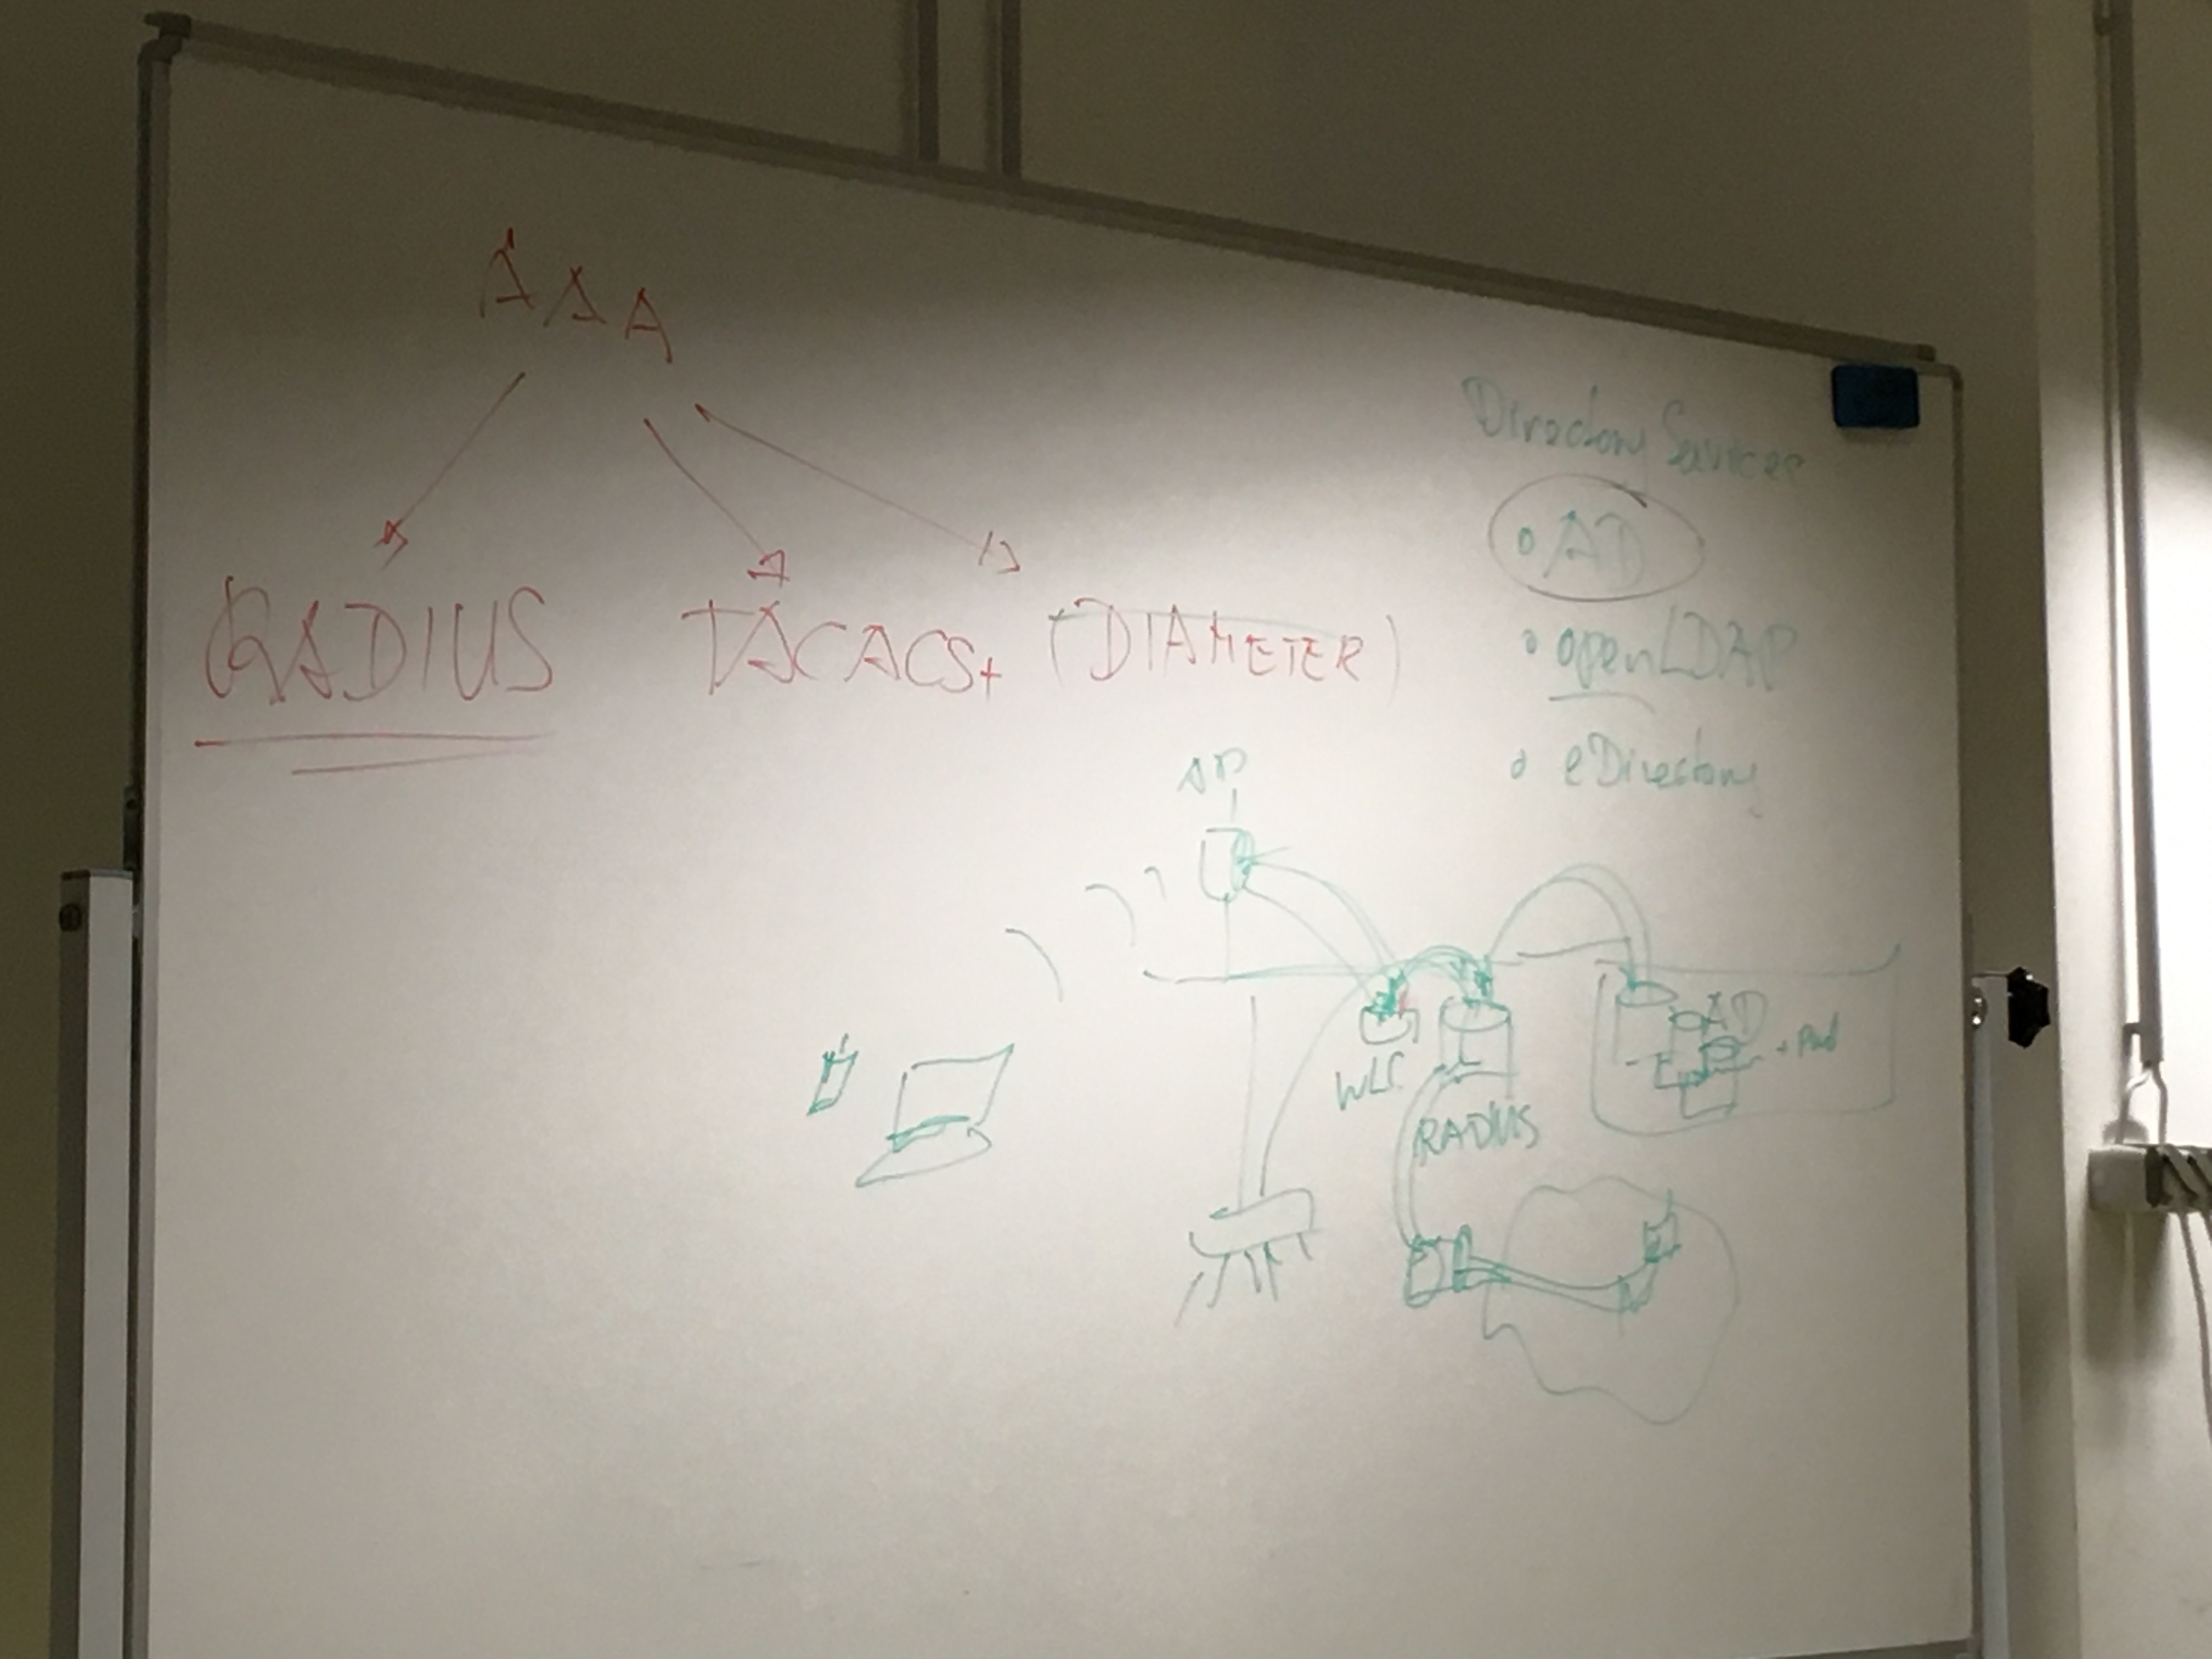 AAA
RADIUS TACACS+ (DIAMETER)
Directory Services
• AD
• openLDAP
• eDirectory
AP
WLC
RADIUS
AD